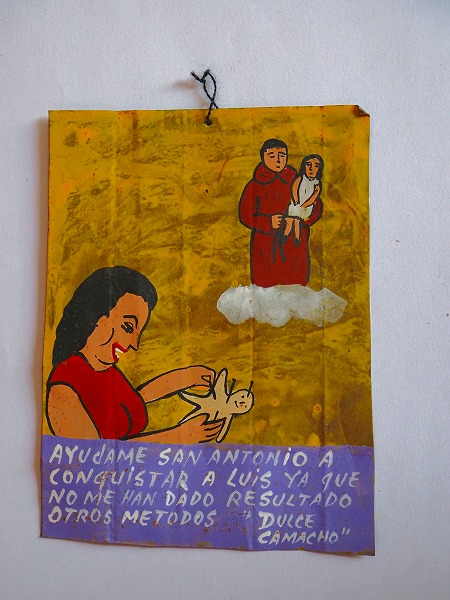 AYUDAME SAN ANTONIO A
CONQUISTAR A LUIS YA QUE
NO ME HAN DADO RESULTADO
OTROS METODOS "DULCE
CAMACHO"